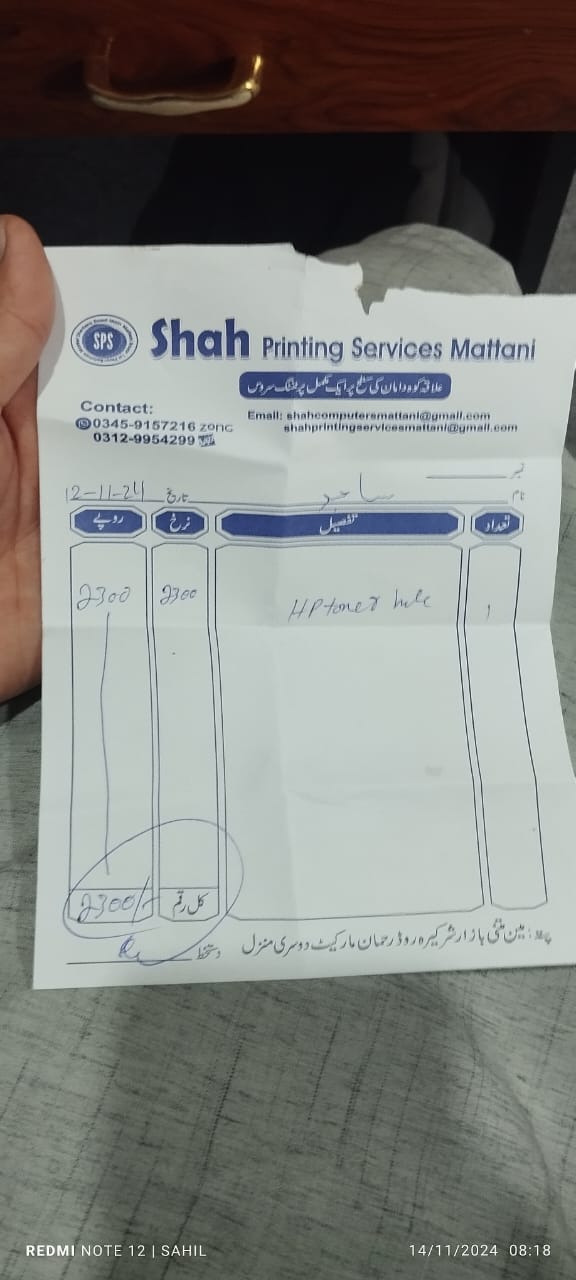 SPS
Shah Printing Services Mattani
علاقہ کوہ دامان کی سطح پر ایک مکمل پرنٹنگ سروس
Contact:
0345-9157216 zong
0312-9954299
Email: shahcomputersmattani@gmail.com
shahprintingservicesmattani@gmail.com
نمبر
نام ساجد تاریخ 12-11-24
تعداد تفصیل نرخ روپے
1 HP toner 2300 2300
کل رقم 2300/-
دستخط
پتہ: مین متنی بازار شرکیرہ روڈ رحمان مارکیٹ دوسری منزل
REDMI NOTE 12 | SAHIL
14/11/2024 08:18